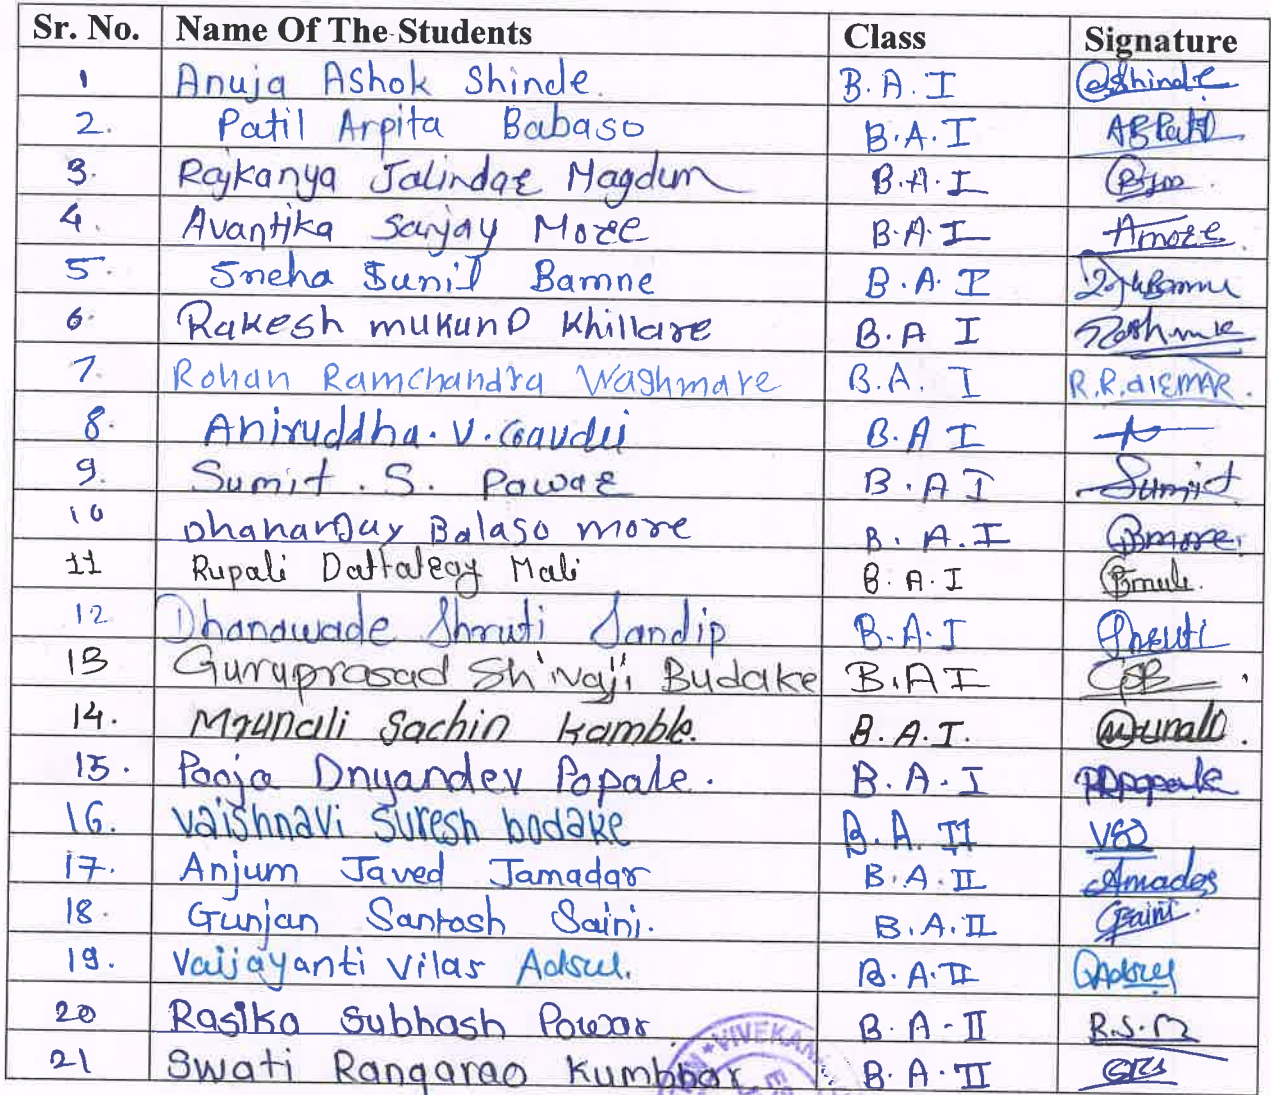 Sr. No. Name Of The Students Class Signature
1 Anuja Ashok Shinde. B.A.I Shinde
2. Patil Arpita Babaso B.A.I ABPatil
3. Rajkanya Jalindar Magdum B.A.I
4. Avantika Sanjay More B.A.I Amore.
5. Sneha Sunil Bamne B.A.I Bamne
6. Rakesh mukunD Khillare B.A I
7. Rohan Ramchandra Waghmare B.A. I
8. Aniruddha. V. B.A I
9. Sumit. S. Pawar B.A I Sumit
10 Dhananjay Balaso more B. A.I Bmore.
11 Rupali Dattatray Mali B.A.I
12 Dhanawade Shruti Sandip B.A.I Shruti
13 Guruprasad Shivaji Budake B.A I GSB
14. Mrunali Sachin Kamble. B.A.I. Mrunali.
15. Pooja Dnyandev Popale. B.A.I PDpopale
16. Vaishnavi Suresh bodake B.A. II VSB
17. Anjum Javed Jamadar B.A.II
18. Gunjan Santosh Saini. B.A.II Saini.
19. Vaijayanti Vilas Adsul. B.A.II Adsul
20 Rasika Subhash Powar B.A-II
21 Swati Rangarao Kumbhar B.A.II